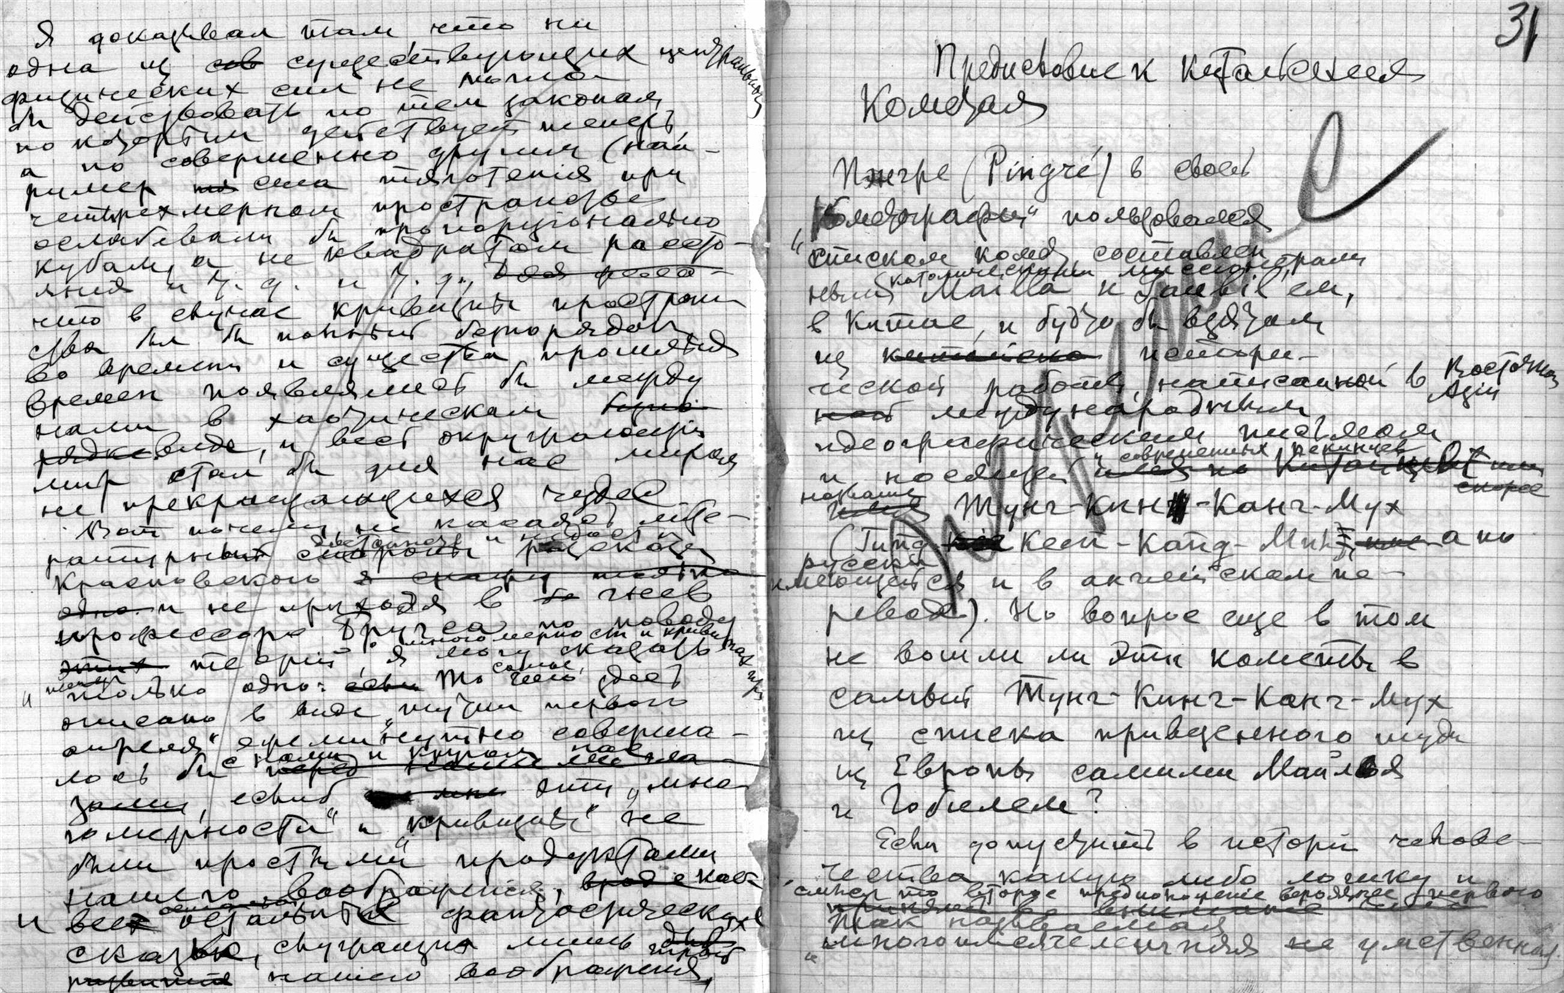 Я доказывал там, что ни
одна из существующих центральных
физических сил не могла
бы действовать по тем законам,
по которым действует теперь,
а по совершенно другим (нап-
ример сила тяготения при
четырехмерном пространстве
ослабевала бы пропорционально
кубам, а не квадратам рассто-
яния и т. д. и т. д.,
что в случае кривизны простран
ства был бы полный беспорядок
во времени и существа прошлых
времен появлялись бы между
нами в хаотическом
виде, и весь окружающий
мир стал бы для нас миром
не прекращающихся чудес
Вот почему, не касаясь лите-
ратурных
и не приходя в гнев
профессора по поводу
многомерности и кривизны
теорий, я могу сказать
только одно: то самое, чего здесь
описано в виде шутки первого
апреля" ежеминутно соверша-
лось бы с нами и кругом нас
если б эти „мно-
гомерности" и „кривизны" не
были простыми продуктами
нашего воображения,
и всех остальных фантастических
сказок, служащих лишь
нашего воображения,
31
Предисловие к Китайским
Кометам
Пэнгре (Pingré) в своей
„Кометографии" пользовался
списком комет, составлен
католическими миссионерами
ным Mailla и Gaubil'ем,
в Китае, и будто бы взятым
из истори-
ческой работы, написанной в Восточной
Азии
международным
идеографическим письмом
и носящей
современных пекинцев
название Тунг-Кинг-Канг-Мух
а по
русски
имеющейся и в английском пе-
реводе). Но вопрос еще в том
не вошли ли эти кометы в
самый Тунг-Кинг-Канг-Мух
из списка приведенного туда
из Европы самими Майлья
и Гобилем?
Если допустить в истории челове-
чества какую либо логику и
смысл то второе предположение вероятнее первого
Так называемая
многотысячелетняя не умственная